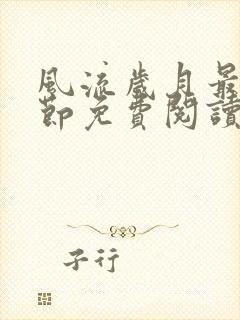 風流歲月最
節免費閱讀
子行